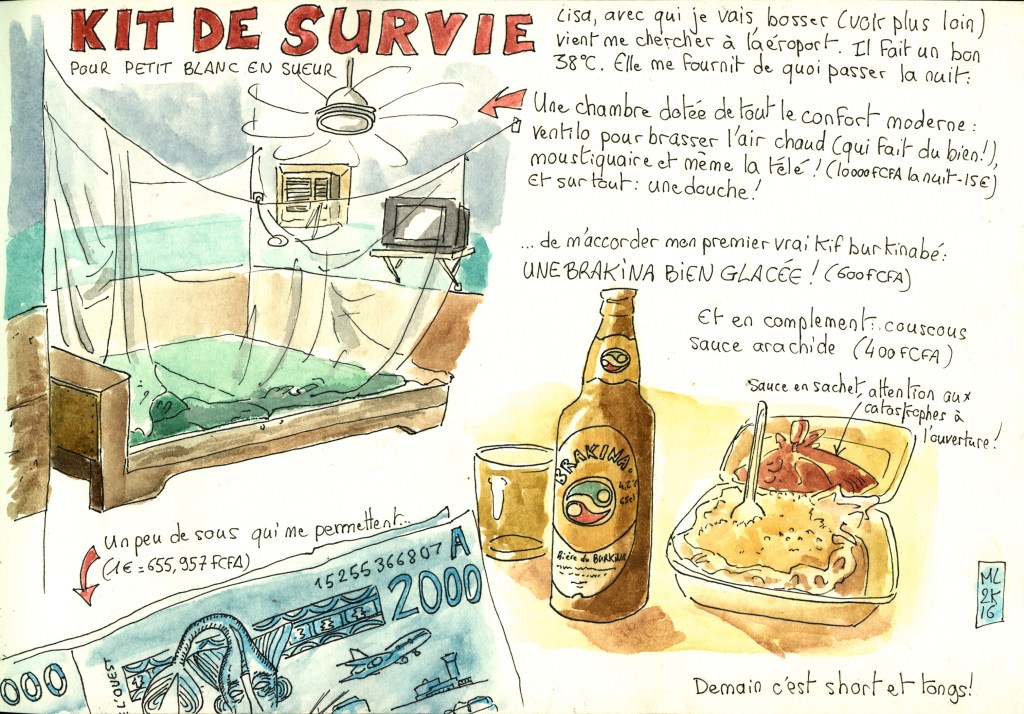 KIT DE SURVIE
POUR PETIT BLANC EN SUEUR
Lisa, avec qui je vais bosser (voir plus loin)
vient me chercher à l'aéroport. Il fait un bon
38°C. Elle me fournit de quoi passer la nuit:
Une chambre dotée de tout le confort moderne:
ventilo pour brasser l'air chaud (qui fait du bien!),
moustiquaire et même la télé! (10000FCFA la nuit-15€)
Et surtout: une douche!
... de m'accorder mon premier vrai kif burkinabé:
UNE BRAKINA BIEN GLACÉE! (600FCFA)
Et en complement: couscous
sauce arachide (400FCFA)
Sauce en sachet, attention aux
catastrophes à
l'ouverture!
BRAKINA
4,2°
65cl
Bière du BURKINA
Un peu de sous qui me permettent...
(1€=655,957FCFA)
15255366807 A
2000
000
L'OUEST
ML
2K
16
Demain c'est short et tongs!